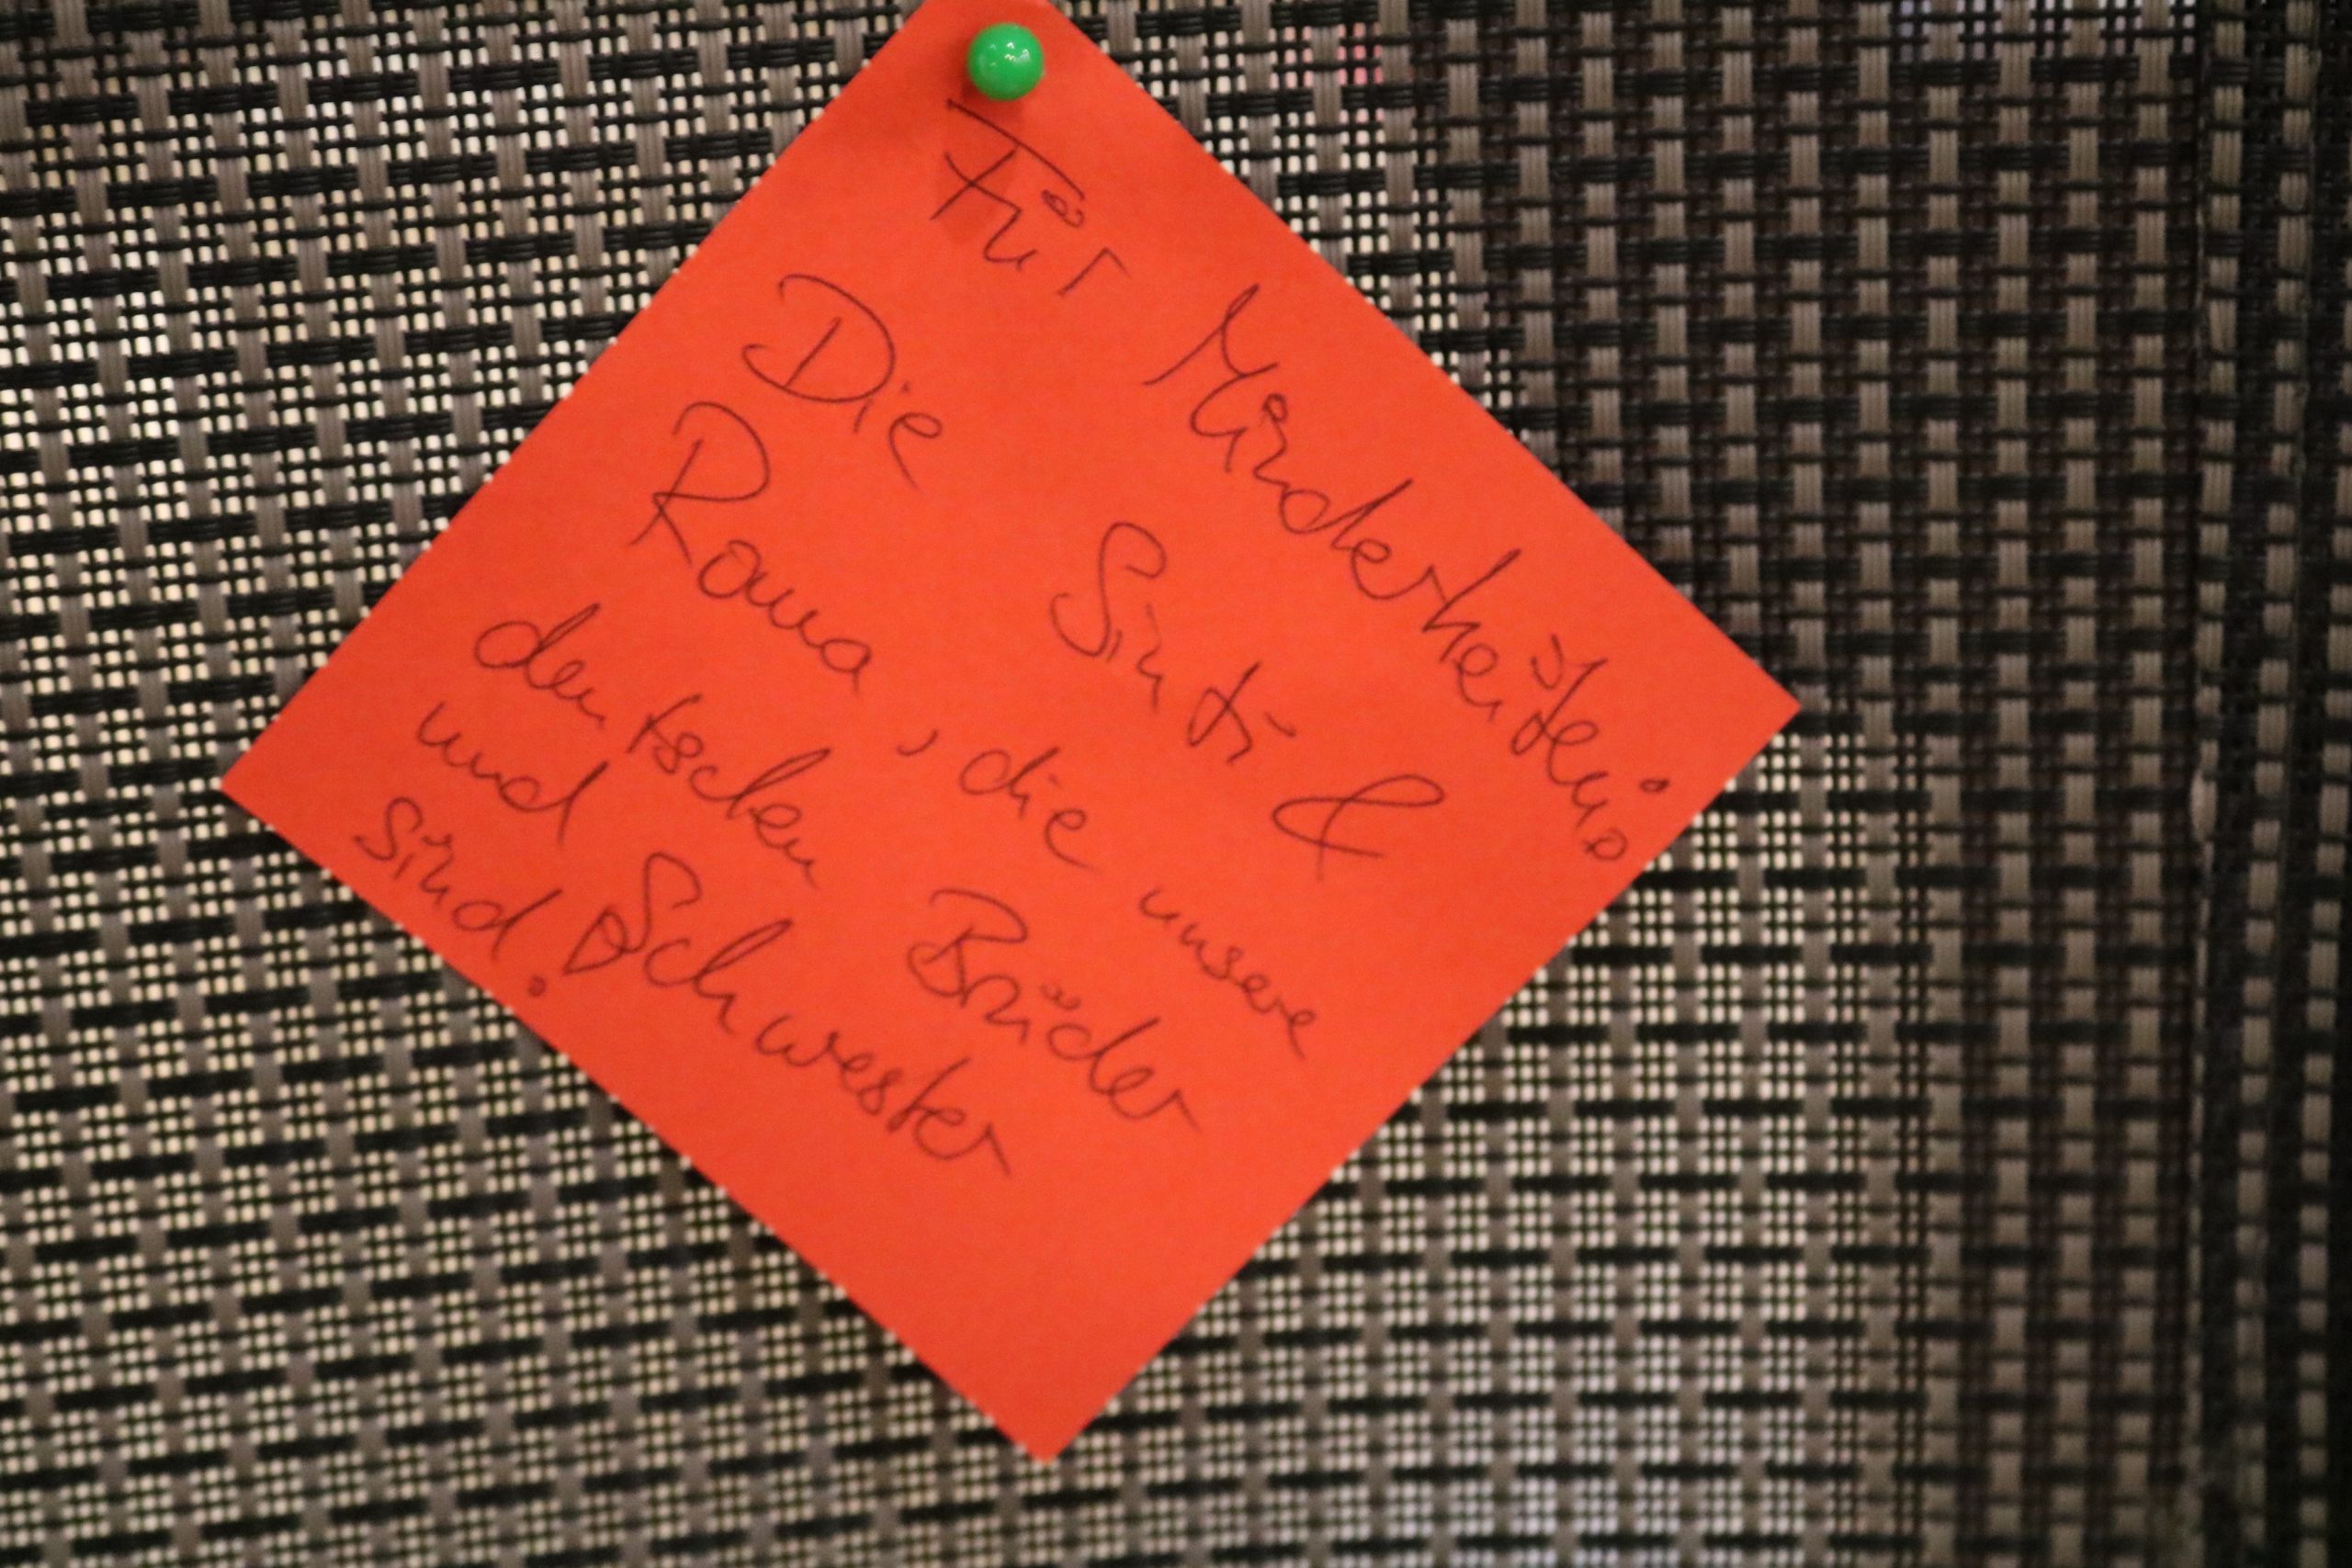 Für Minderheiten:
Die Sinti &
Roma, die unsere
deutschen Brüder
und Schwester
sind.